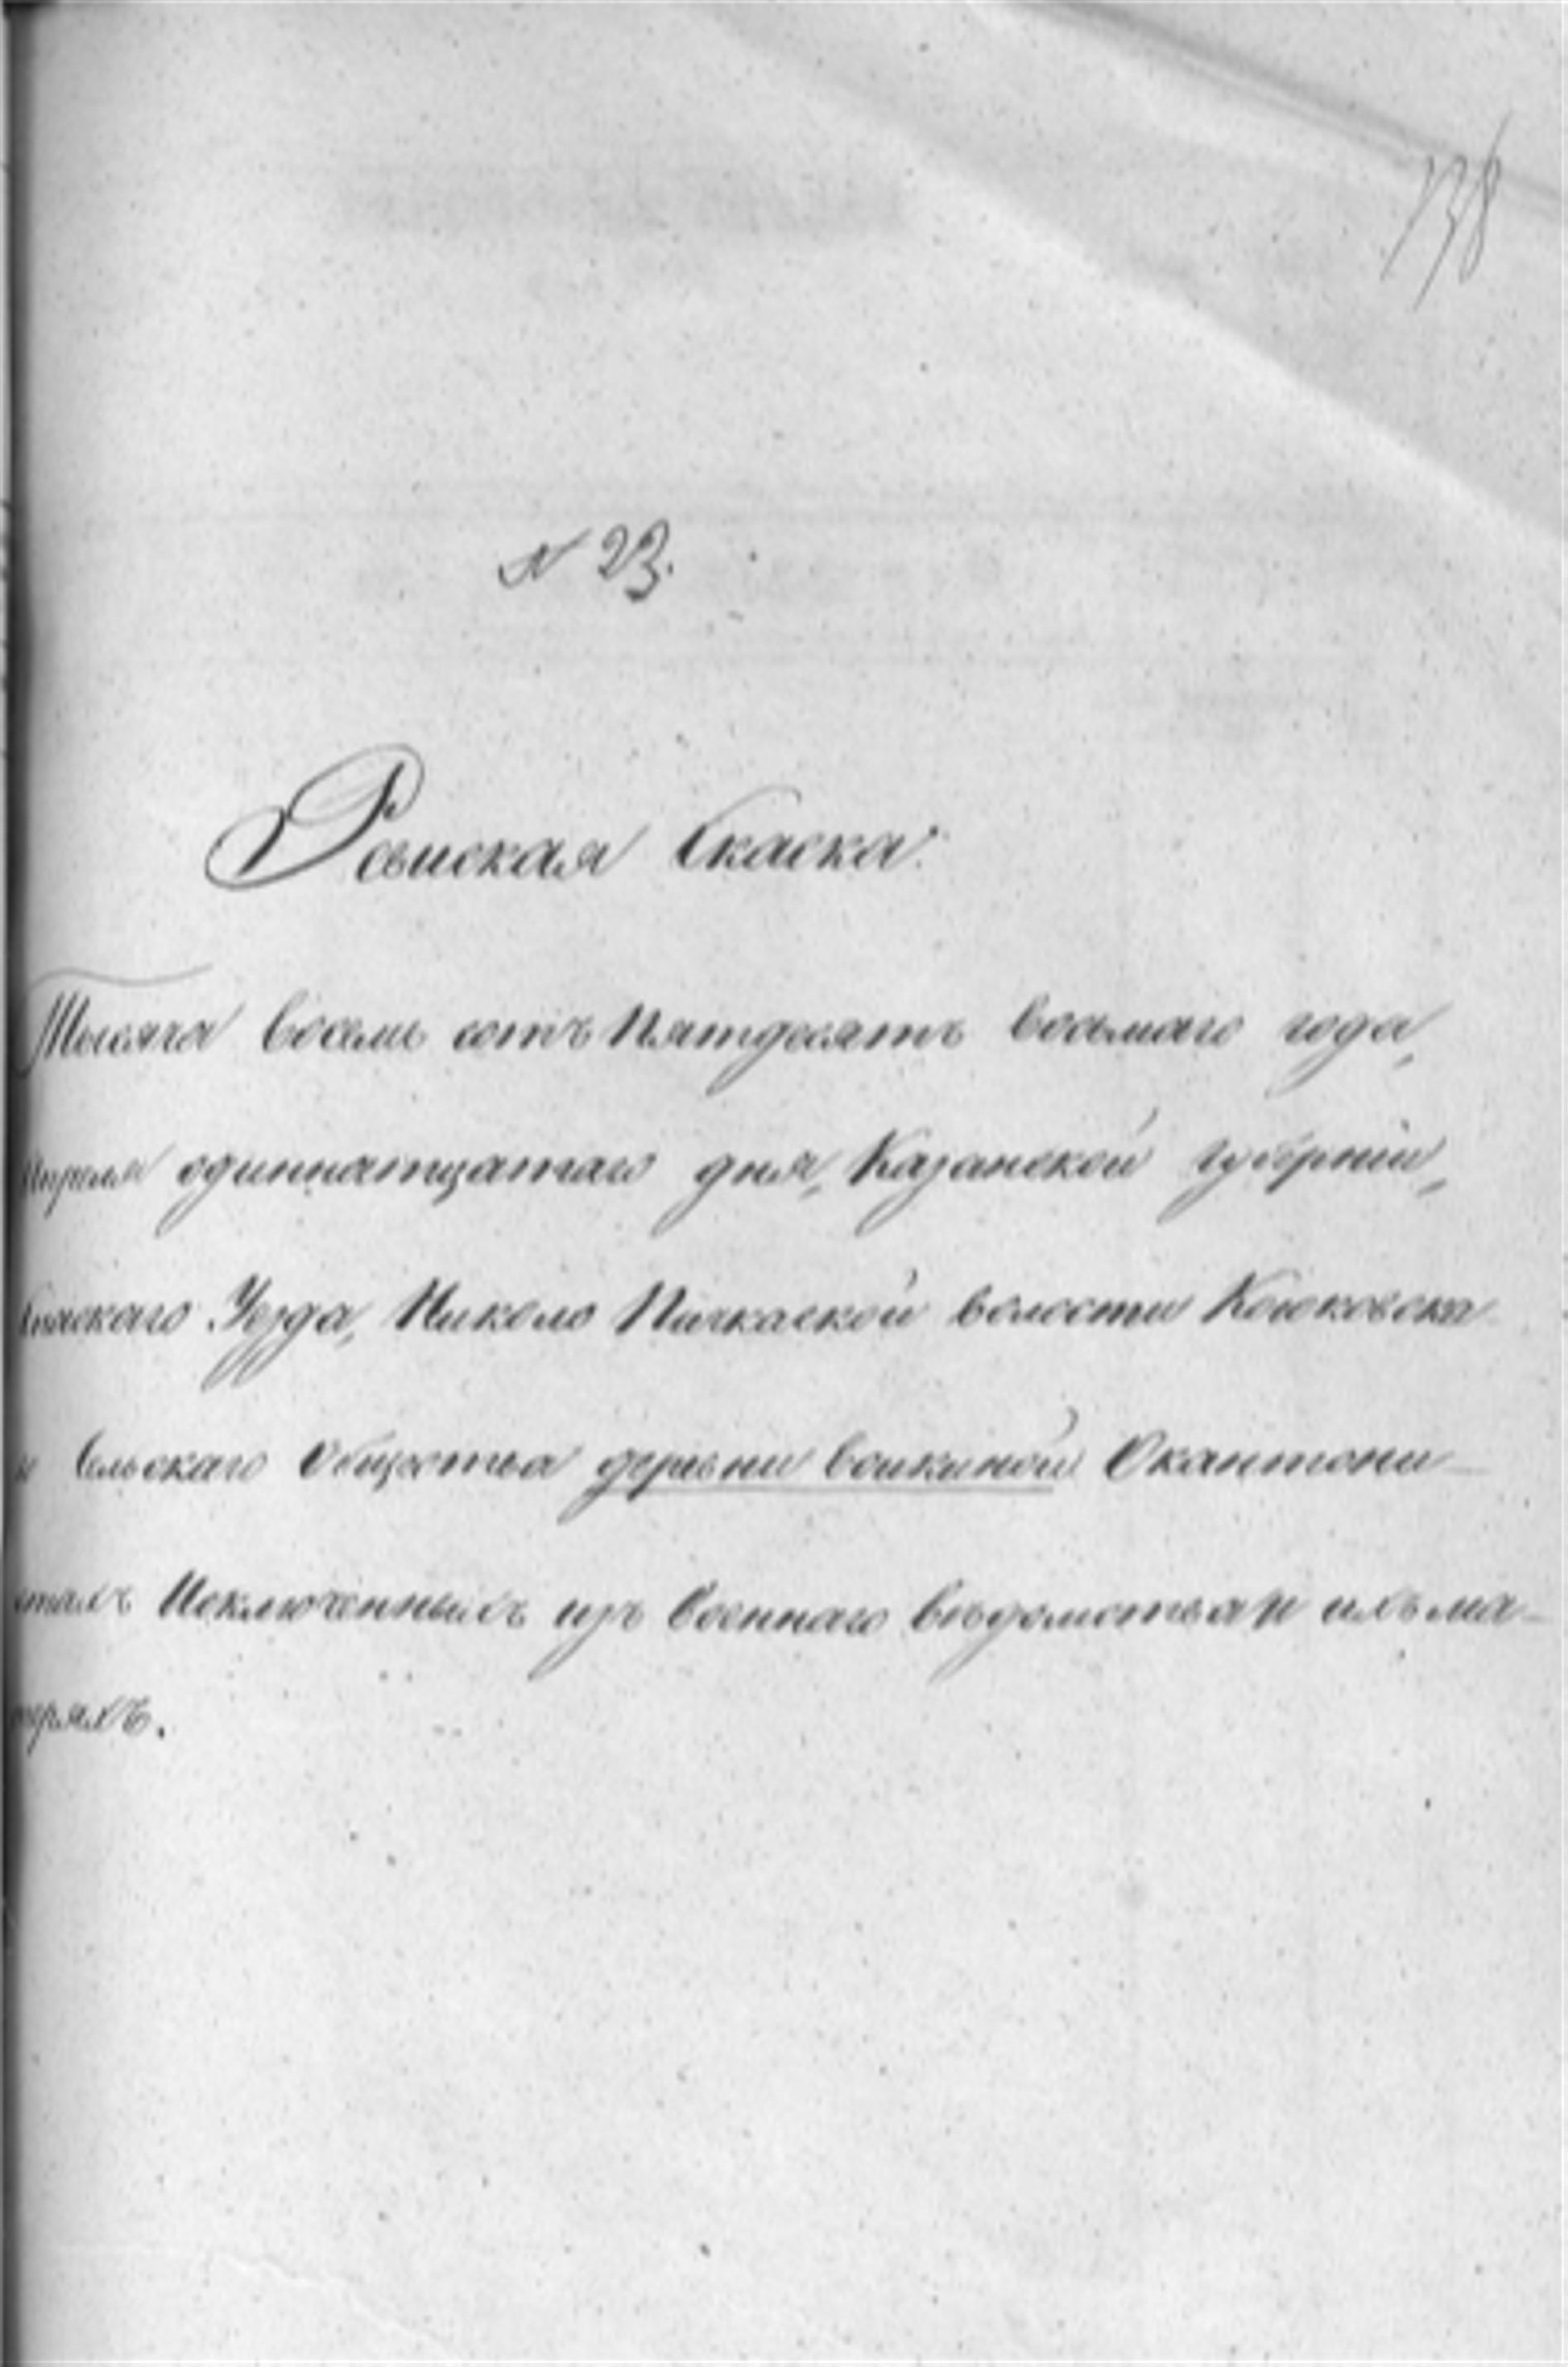 138
N 23.
Ревиская Скаска.
Тысяча восемь сотъ Пятдесятъ восьмаго года,
Апреля одиннатцатаго дня, Казанской губерніи,
Уезда, Николо Пичкаской волости Коюковска
Сельскаго Общества деревни Воикиной Окантони-
стахъ Исключенныхъ изъ Военнаго Вѣдомства и ихъ ма-
теряхъ.